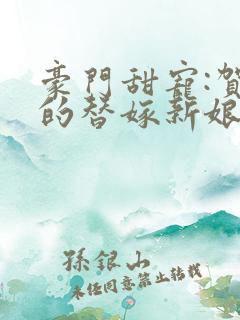 豪門甜寵:賀
的替嫁新娘
孫銀山
未经同意禁止转载